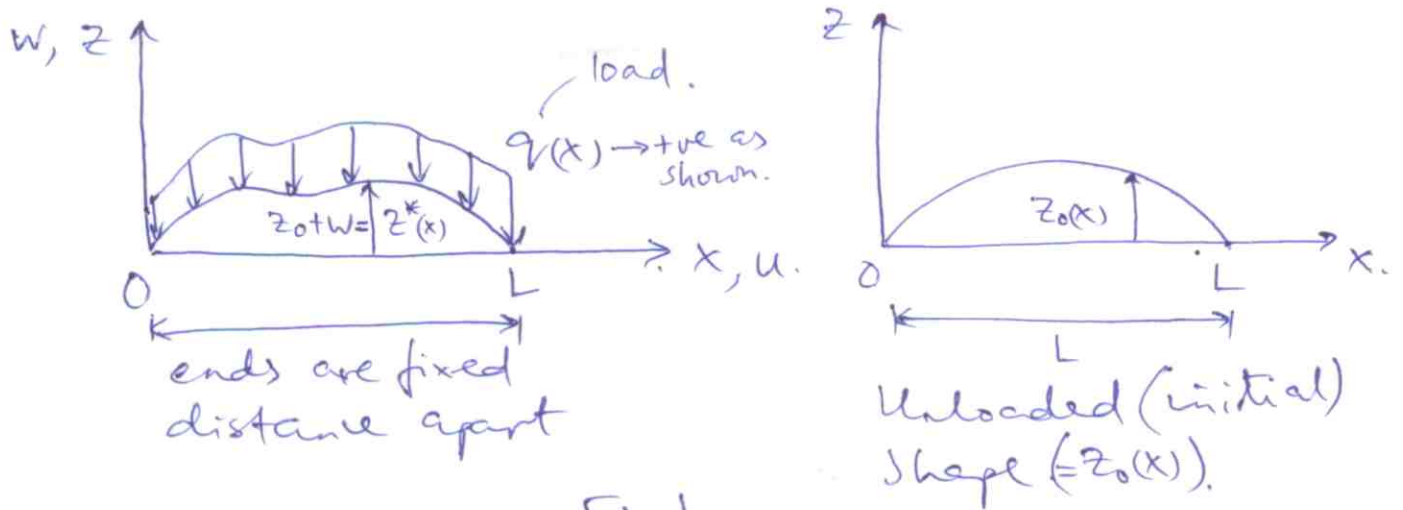 w, z
load.
q(x) → +ve as
shown.
z₀+w= z*(x)
0
L
x, u.
ends are fixed
distance apart
z
z₀(x)
0
L
x.
L
Unloaded (initial)
shape (=z₀(x)).